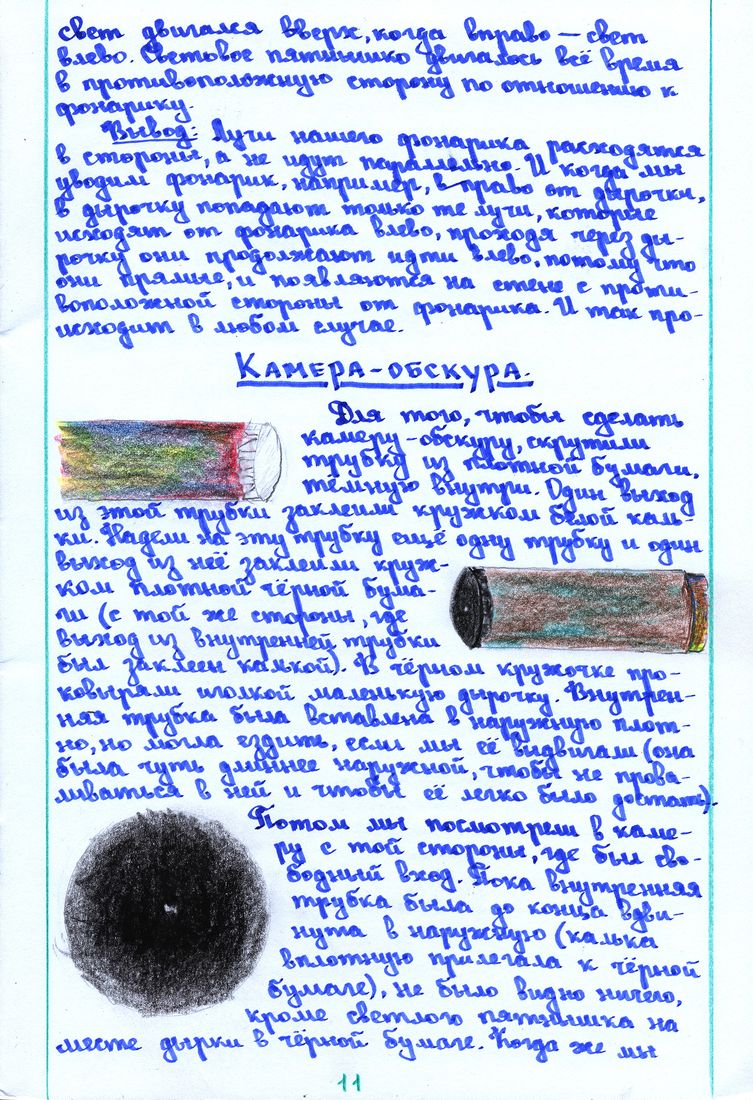 свет двигался вверх, когда вправо – свет
влево. Световое пятнышко двигалось всё время
в противоположную сторону по отношению к
фонарику.
Вывод: Лучи нашего фонарика расходятся
в стороны, а не идут параллельно. И когда мы
уводим фонарик, например, в право от дырочки,
в дырочку попадают только те лучи, которые
исходят от фонарика влево, проходя через ды-
рочку они продолжают идти влево, потому что
они прямые, и появляются на стене с проти-
воположной стороны от фонарика. И так про-
исходит в любом случае.
КАМЕРА-ОБСКУРА.
Для того, чтобы сделать
камеру-обскуру, скрутили
трубку из плотной бумаги,
тёмную внутри. Один выход
из этой трубки заклеили кружком белой каль-
ки. Надели на эту трубку ещё одну трубку и один
выход из неё заклеили круж-
ком плотной чёрной бума-
ги (с той же стороны, где
выход из внутренней трубки
был заклеен калькой). В чёрном кружочке про-
ковыряли иголкой маленькую дырочку. Внутрен-
няя трубка была вставлена в наружную плот-
но, но могла ездить, если мы её выдвигали (она
была чуть длиннее наружной, чтобы не прова-
ливаться в ней и чтобы её легко было достать).
Потом мы посмотрели в каме-
ру с той стороны, где был сво-
бодный вход. Пока внутренняя
трубка была до конца вдви-
нута в наружную (калька
вплотную прилегала к чёрной
бумаге), не было видно ничего,
кроме светлого пятнышка на
месте дырки в чёрной бумаге. Когда же мы
11